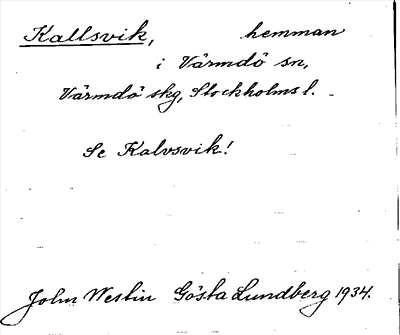 Kallsvik, hemman
i Värmdö sn,
Värmdö skg, Stockholms l.
Se Kalvsvik!
John Westin Gösta Lundberg 1934.